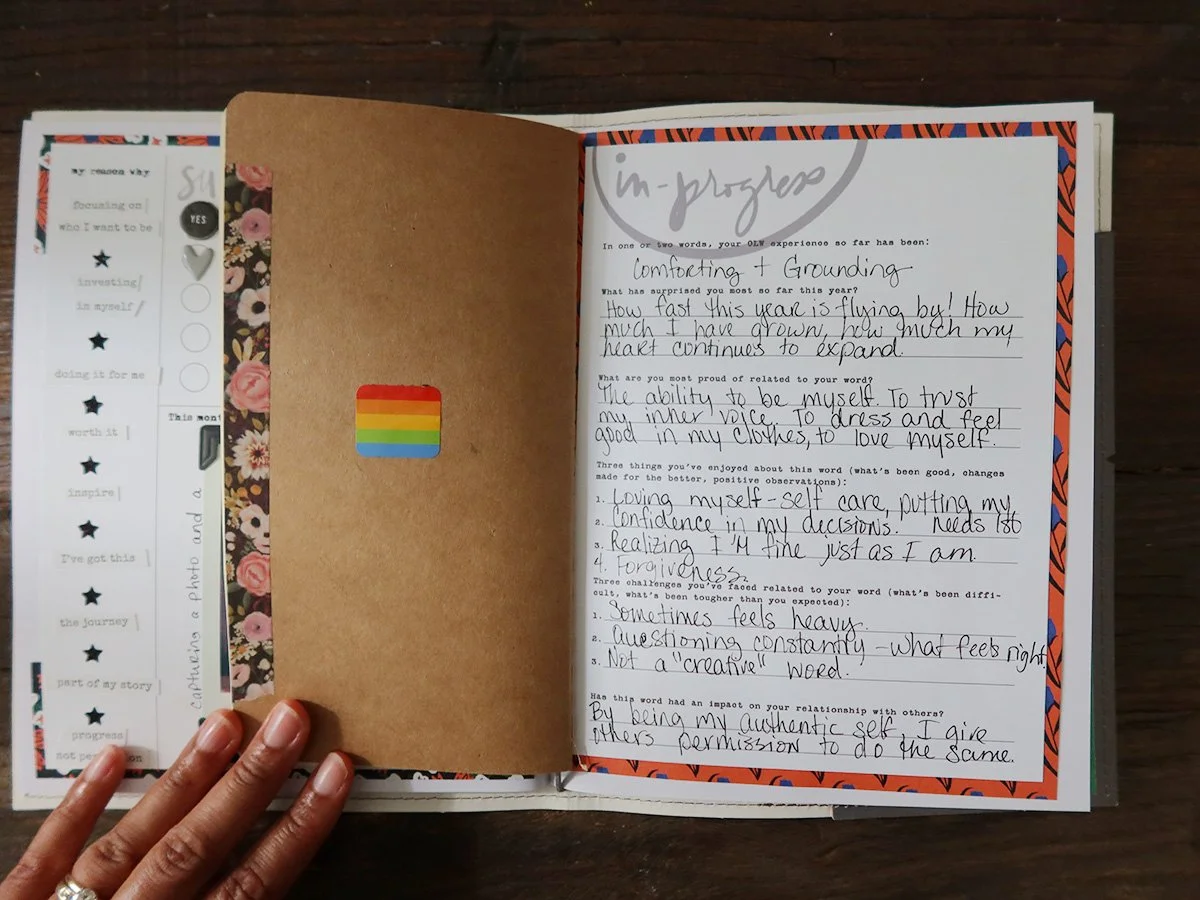 my reason why
focusing on
who I want to be
investing
in myself
doing it for me
worth it
inspire
I've got this
the journey
part of my story
progress
not
YES
This
capturing a photo and a
in-progress
In one or two words, your OLW experience so far has been:
Comforting + Grounding
What has surprised you most so far this year?
How fast this year is flying by! How
much I have grown, how much my
heart continues to expand.
What are you most proud of related to your word?
The ability to be myself. To trust
my inner voice. To dress and feel
good in my clothes, to love myself.
Three things you've enjoyed about this word (what's been good, changes
made for the better, positive observations):
1. Loving myself - self care, putting my
2. Confidence in my decisions! needs 1st
3. Realizing I'M fine just as I am.
4. Forgiveness.
Three challenges you've faced related to your word (what's been diffi-
cult, what's been tougher than you expected):
1. Sometimes feels heavy.
2. Questioning constantly - what feels right
3. Not a "creative" word.
Has this word had an impact on your relationship with others?
By being my authentic self, I give
others permission to do the same.